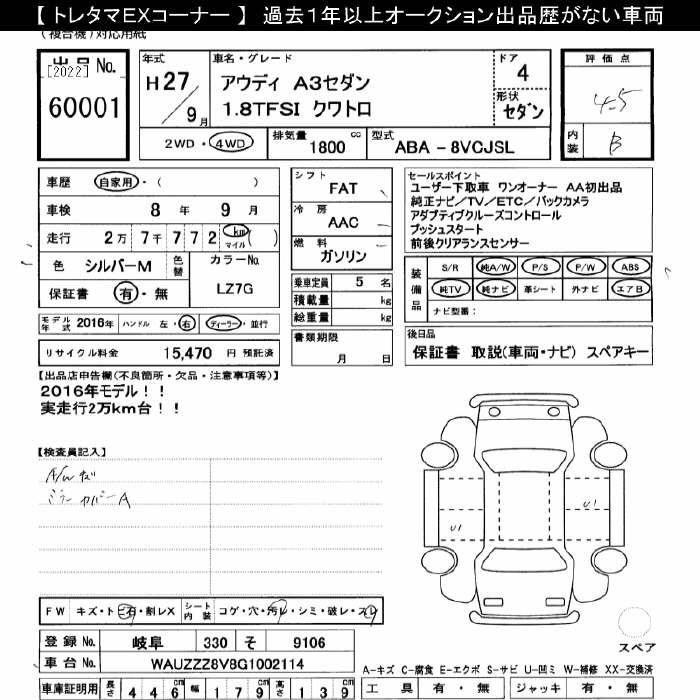 【 トレタマEXコーナー 】 過去1年以上オークション出品歴がない車両
(複合機)対応用紙
出品 No.
[2022]
60001
年式
H 27 / 9 月
車名・グレード
アウディ A3セダン
1.8TFSI クワトロ
ドア
4
形状
セダン
評価点
4.5
内装
B
2WD・4WD
排気量
1800 cc
型式
ABA - 8VCJSL
車歴
自家用・( )
車検
8 年 9 月
走行
2万 7千 7 7 2 km マイル ( )
色
シルバーM
色替
カラーNo.
LZ7G
保証書
有・無
シフト
FAT
冷房
AAC
燃料
ガソリン
乗車定員 5 名
積載量 kg
総重量 kg
書類期限
月 日
セールスポイント
ユーザー下取車 ワンオーナー AA初出品
純正ナビ/TV/ETC/バックカメラ
アダプティブクルーズコントロール
プッシュスタート
前後クリアランスセンサー
装備品
S/R 純A/W P/S P/W ABS
純TV 純ナビ 革シート 外ナビ エアB
ナビ型番:
モデル年式 2016年 ハンドル 左・右 ディーラー・並行
リサイクル料金 15,470 円 預託済
後日品
保証書 取説(車両・ナビ) スペアキー
【出品店申告欄(不良箇所・欠品・注意事項等)】
2016年モデル!!
実走行2万km台!!
【検査員記入】
A/W
ミラーカバーA
U1
U1
FW キズ・トビ石・割レX
シート内装 コゲ・穴・汚レ・シミ・破レ・スレ
スペア
登録 No. 岐阜 330 そ 9106
車台 No. WAUZZZ8V8G1002114
A-キズ C-腐食 E-エクボ S-サビ U-凹ミ W-補修 XX-交換済
車庫証明用 長さ 4 4 6 cm 幅 1 7 9 cm 高さ 1 3 9 cm
工具 有・無 ジャッキ 有・無